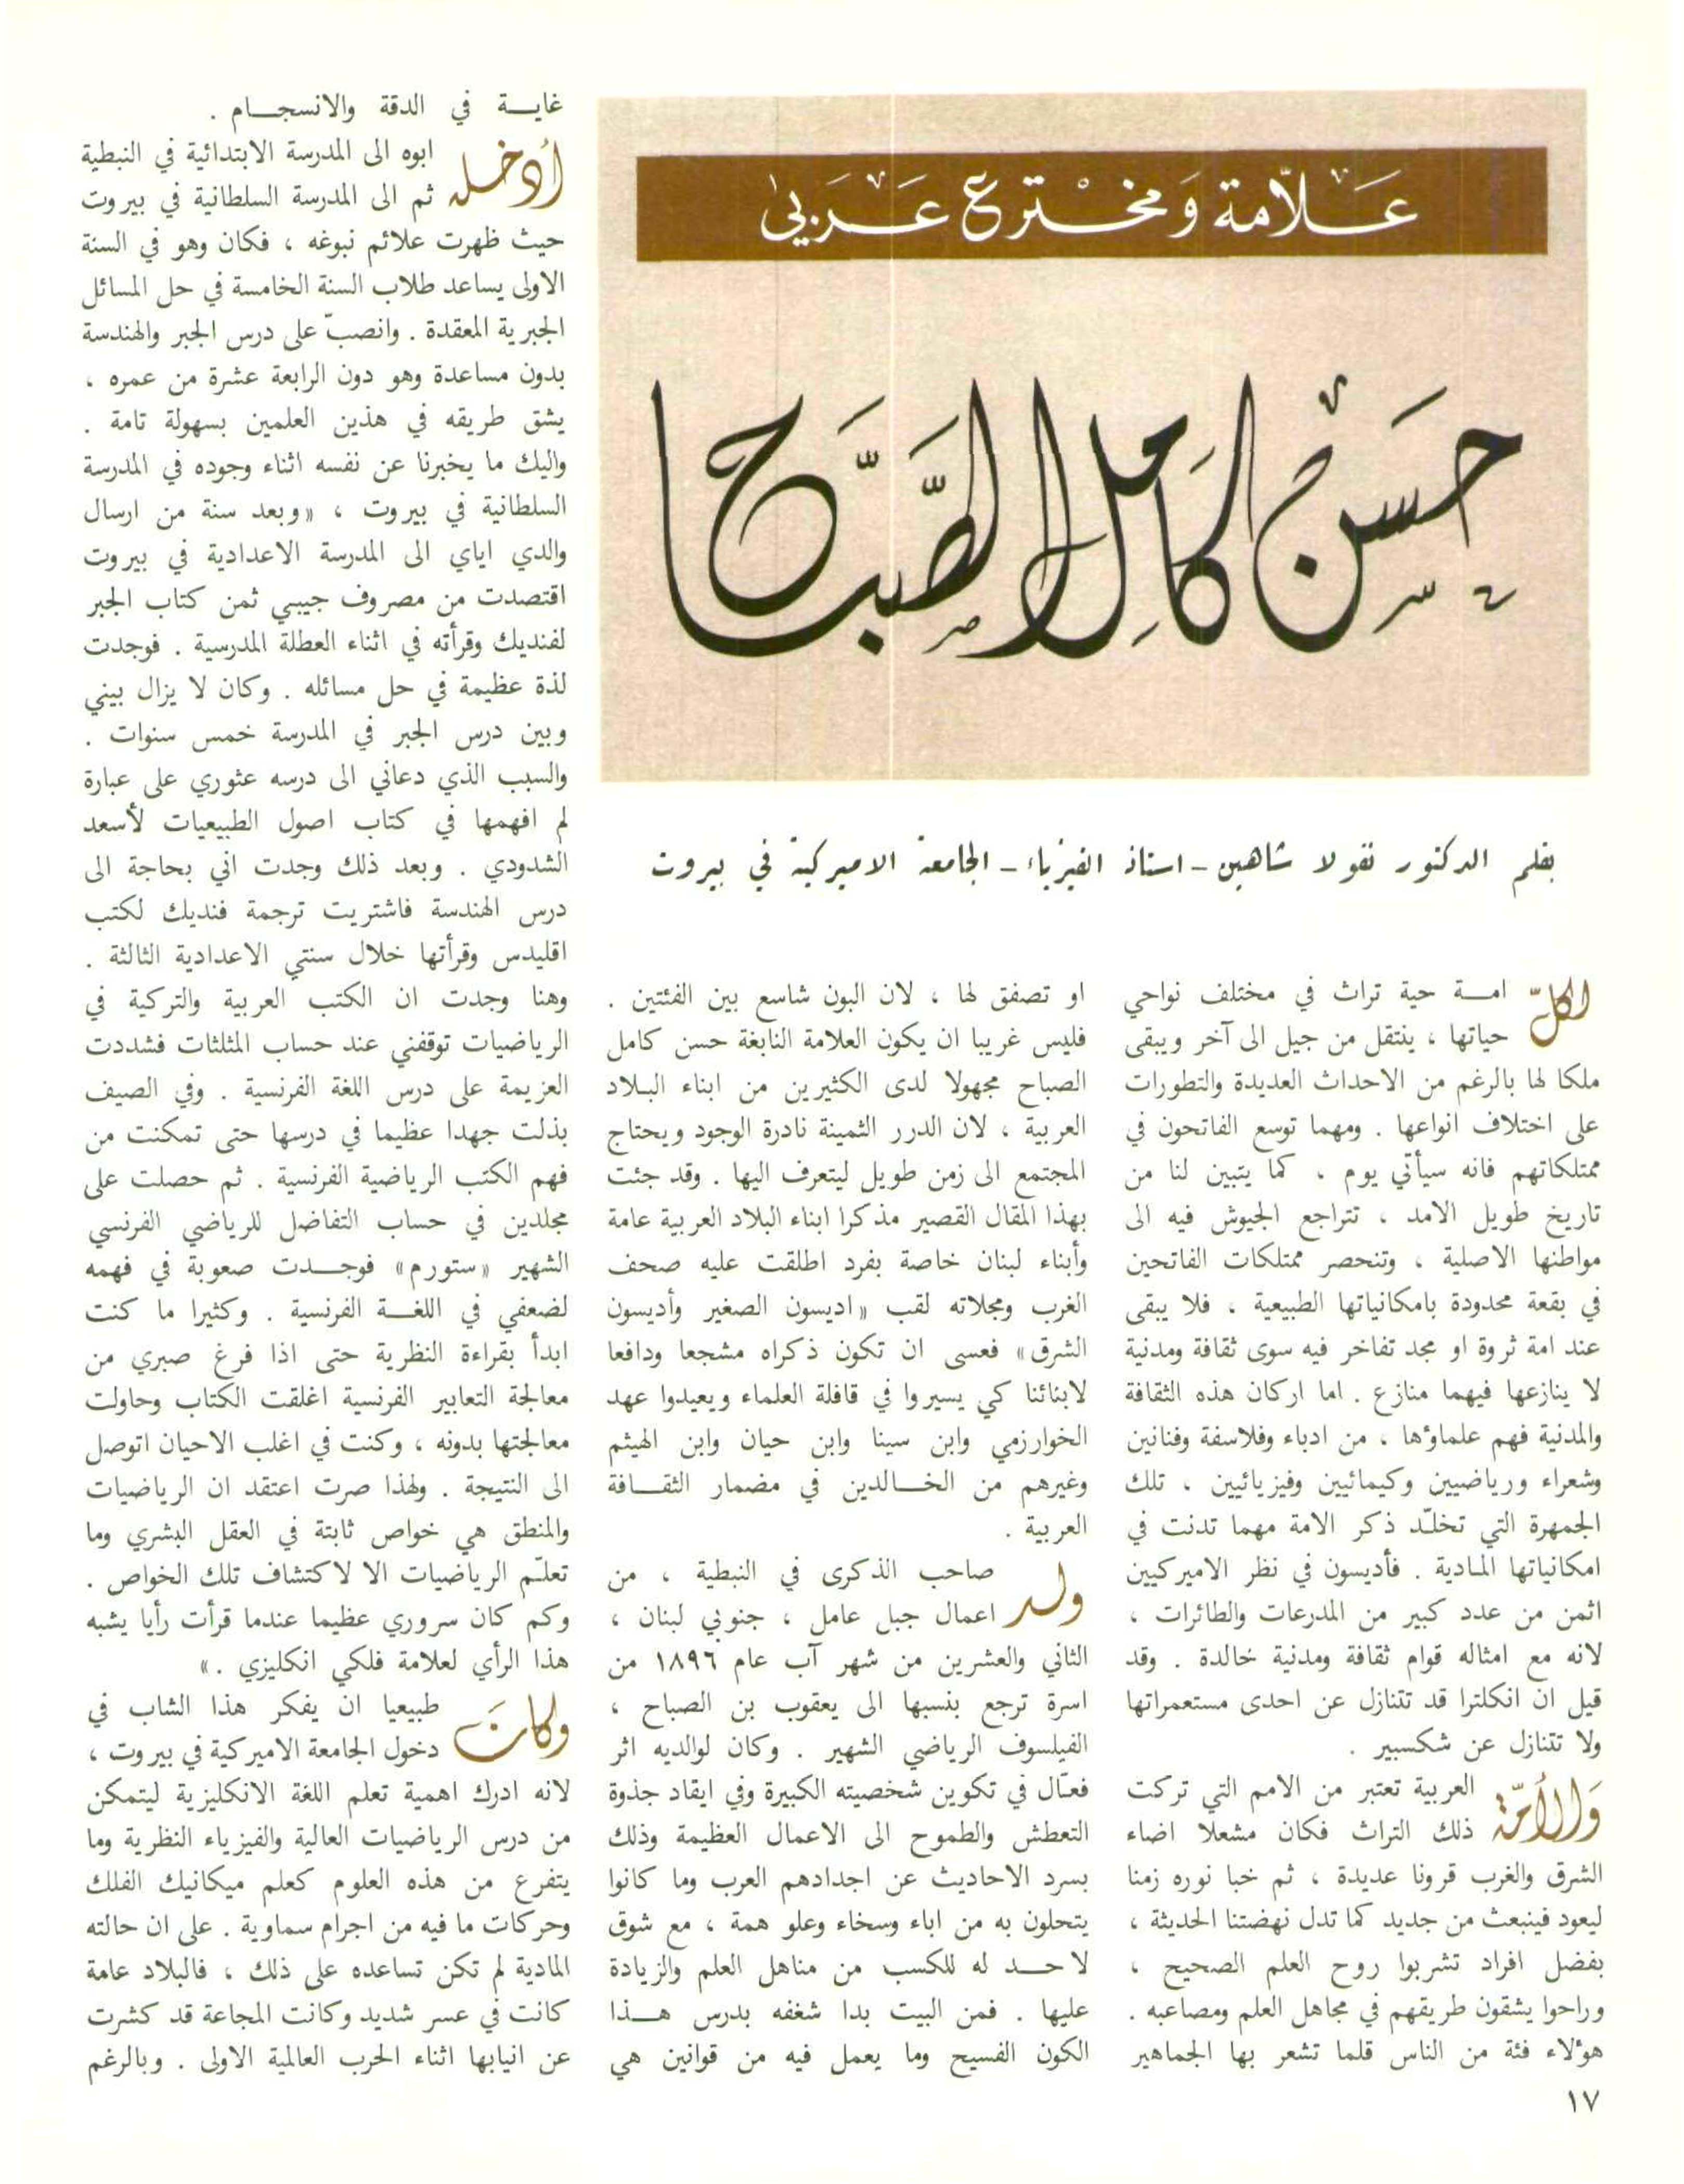 عَلّامة وَمخترع عَرَبي
حسن كامل الصّبّاح
بقلم الدكتور نقولا شاهين - استاذ الفيزياء - الجامعة الاميركية في بيروت
لكلّ امة حية تراث في مختلف نواحي
حياتها ، ينتقل من جيل الى آخر ويبقى
ملكا لها بالرغم من الاحداث العديدة والتطورات
على اختلاف انواعها . ومهما توسع الفاتحون في
ممتلكاتهم فانه سيأتي يوم ، كما يتبين لنا من
تاريخ طويل الامد ، تتراجع الجيوش فيه الى
مواطنها الاصلية ، وتنحصر ممتلكات الفاتحين
في بقعة محدودة بامكانياتها الطبيعية ، فلا يبقى
عند امة ثروة او مجد تفاخر فيه سوى ثقافة ومدنية
لا ينازعها فيهما منازع . اما اركان هذه الثقافة
والمدنية فهم علماؤها ، من ادباء وفلاسفة وفنانين
وشعراء ورياضيين وكيمائيين وفيزيائيين ، تلك
الجمهرة التي تخلّد ذكر الامة مهما تدنت في
امكانياتها المادية . فأديسون في نظر الاميركيين
اثمن من عدد كبير من المدرعات والطائرات ،
لانه مع امثاله قوام ثقافة ومدنية خالدة . وقد
قيل ان انكلترا قد تتنازل عن احدى مستعمراتها
ولا تتنازل عن شكسبير .
وَالأمّة العربية تعتبر من الامم التي تركت
ذلك التراث فكان مشعلا اضاء
الشرق والغرب قرونا عديدة ، ثم خبا نوره زمنا
ليعود فينبعث من جديد كما تدل نهضتنا الحديثة ،
بفضل افراد تشربوا روح العلم الصحيح ،
وراحوا يشقون طريقهم في مجاهل العلم ومصاعبه .
هؤلاء فئة من الناس قلما تشعر بها الجماهير
او تصفق لها ، لان البون شاسع بين الفئتين .
فليس غريبا ان يكون العلامة النابغة حسن كامل
الصباح مجهولا لدى الكثيرين من ابناء البلاد
العربية ، لان الدرر الثمينة نادرة الوجود ويحتاج
المجتمع الى زمن طويل ليتعرف اليها . وقد جئت
بهذا المقال القصير مذكرا ابناء البلاد العربية عامة
وأبناء لبنان خاصة بفرد اطلقت عليه صحف
الغرب ومجلاته لقب «اديسون الصغير وأديسون
الشرق» فعسى ان تكون ذكراه مشجعا ودافعا
لابنائنا كي يسيروا في قافلة العلماء ويعيدوا عهد
الخوارزمي وابن سينا وابن حيان وابن الهيثم
وغيرهم من الخالدين في مضمار الثقافة
العربية .
ولد صاحب الذكرى في النبطية ، من
اعمال جبل عامل ، جنوبي لبنان ،
الثاني والعشرين من شهر آب عام ١٨٩٦ من
اسرة ترجع بنسبها الى يعقوب بن الصباح ،
الفيلسوف الرياضي الشهير . وكان لوالديه اثر
فعّال في تكوين شخصيته الكبيرة وفي ايقاد جذوة
التعطش والطموح الى الاعمال العظيمة وذلك
بسرد الاحاديث عن اجدادهم العرب وما كانوا
يتحلون به من اباء وسخاء وعلو همة ، مع شوق
لا حد له للكسب من مناهل العلم والزيادة
عليها . فمن البيت بدا شغفه بدرس هذا
الكون الفسيح وما يعمل فيه من قوانين هي
غاية في الدقة والانسجام .
أدخله ابوه الى المدرسة الابتدائية في النبطية
ثم الى المدرسة السلطانية في بيروت
حيث ظهرت علائم نبوغه ، فكان وهو في السنة
الاولى يساعد طلاب السنة الخامسة في حل المسائل
الجبرية المعقدة . وانصبّ على درس الجبر والهندسة
بدون مساعدة وهو دون الرابعة عشرة من عمره ،
يشق طريقه في هذين العلمين بسهولة تامة .
واليك ما يخبرنا عن نفسه اثناء وجوده في المدرسة
السلطانية في بيروت ، «وبعد سنة من ارسال
والدي اياي الى المدرسة الاعدادية في بيروت
اقتصدت من مصروف جيبي ثمن كتاب الجبر
لفنديك وقرأته في اثناء العطلة المدرسية . فوجدت
لذة عظيمة في حل مسائله . وكان لا يزال بيني
وبين درس الجبر في المدرسة خمس سنوات .
والسبب الذي دعاني الى درسه عثوري على عبارة
لم افهمها في كتاب اصول الطبيعيات لأسعد
الشدودي . وبعد ذلك وجدت اني بحاجة الى
درس الهندسة فاشتريت ترجمة فنديك لكتب
اقليدس وقرأتها خلال سنتي الاعدادية الثالثة .
وهنا وجدت ان الكتب العربية والتركية في
الرياضيات توقفني عند حساب المثلثات فشددت
العزيمة على درس اللغة الفرنسية . وفي الصيف
بذلت جهدا عظيما في درسها حتى تمكنت من
فهم الكتب الرياضية الفرنسية . ثم حصلت على
مجلدين في حساب التفاضل للرياضي الفرنسي
الشهير «ستورم» فوجدت صعوبة في فهمه
لضعفي في اللغة الفرنسية . وكثيرا ما كنت
ابدأ بقراءة النظرية حتى اذا فرغ صبري من
معالجة التعابير الفرنسية اغلقت الكتاب وحاولت
معالجتها بدونه ، وكنت في اغلب الاحيان اتوصل
الى النتيجة . ولهذا صرت اعتقد ان الرياضيات
والمنطق هي خواص ثابتة في العقل البشري وما
تعلّم الرياضيات الا لاكتشاف تلك الخواص .
وكم كان سروري عظيما عندما قرأت رأيا يشبه
هذا الرأي لعلامة فلكي انكليزي .»
وكانَ طبيعيا ان يفكر هذا الشاب في
دخول الجامعة الاميركية في بيروت ،
لانه ادرك اهمية تعلم اللغة الانكليزية ليتمكن
من درس الرياضيات العالية والفيزياء النظرية وما
يتفرع من هذه العلوم كعلم ميكانيك الفلك
وحركات ما فيه من اجرام سماوية . على ان حالته
المادية لم تكن تساعده على ذلك ، فالبلاد عامة
كانت في عسر شديد وكانت المجاعة قد كشرت
عن انيابها اثناء الحرب العالمية الاولى . وبالرغم
١٧